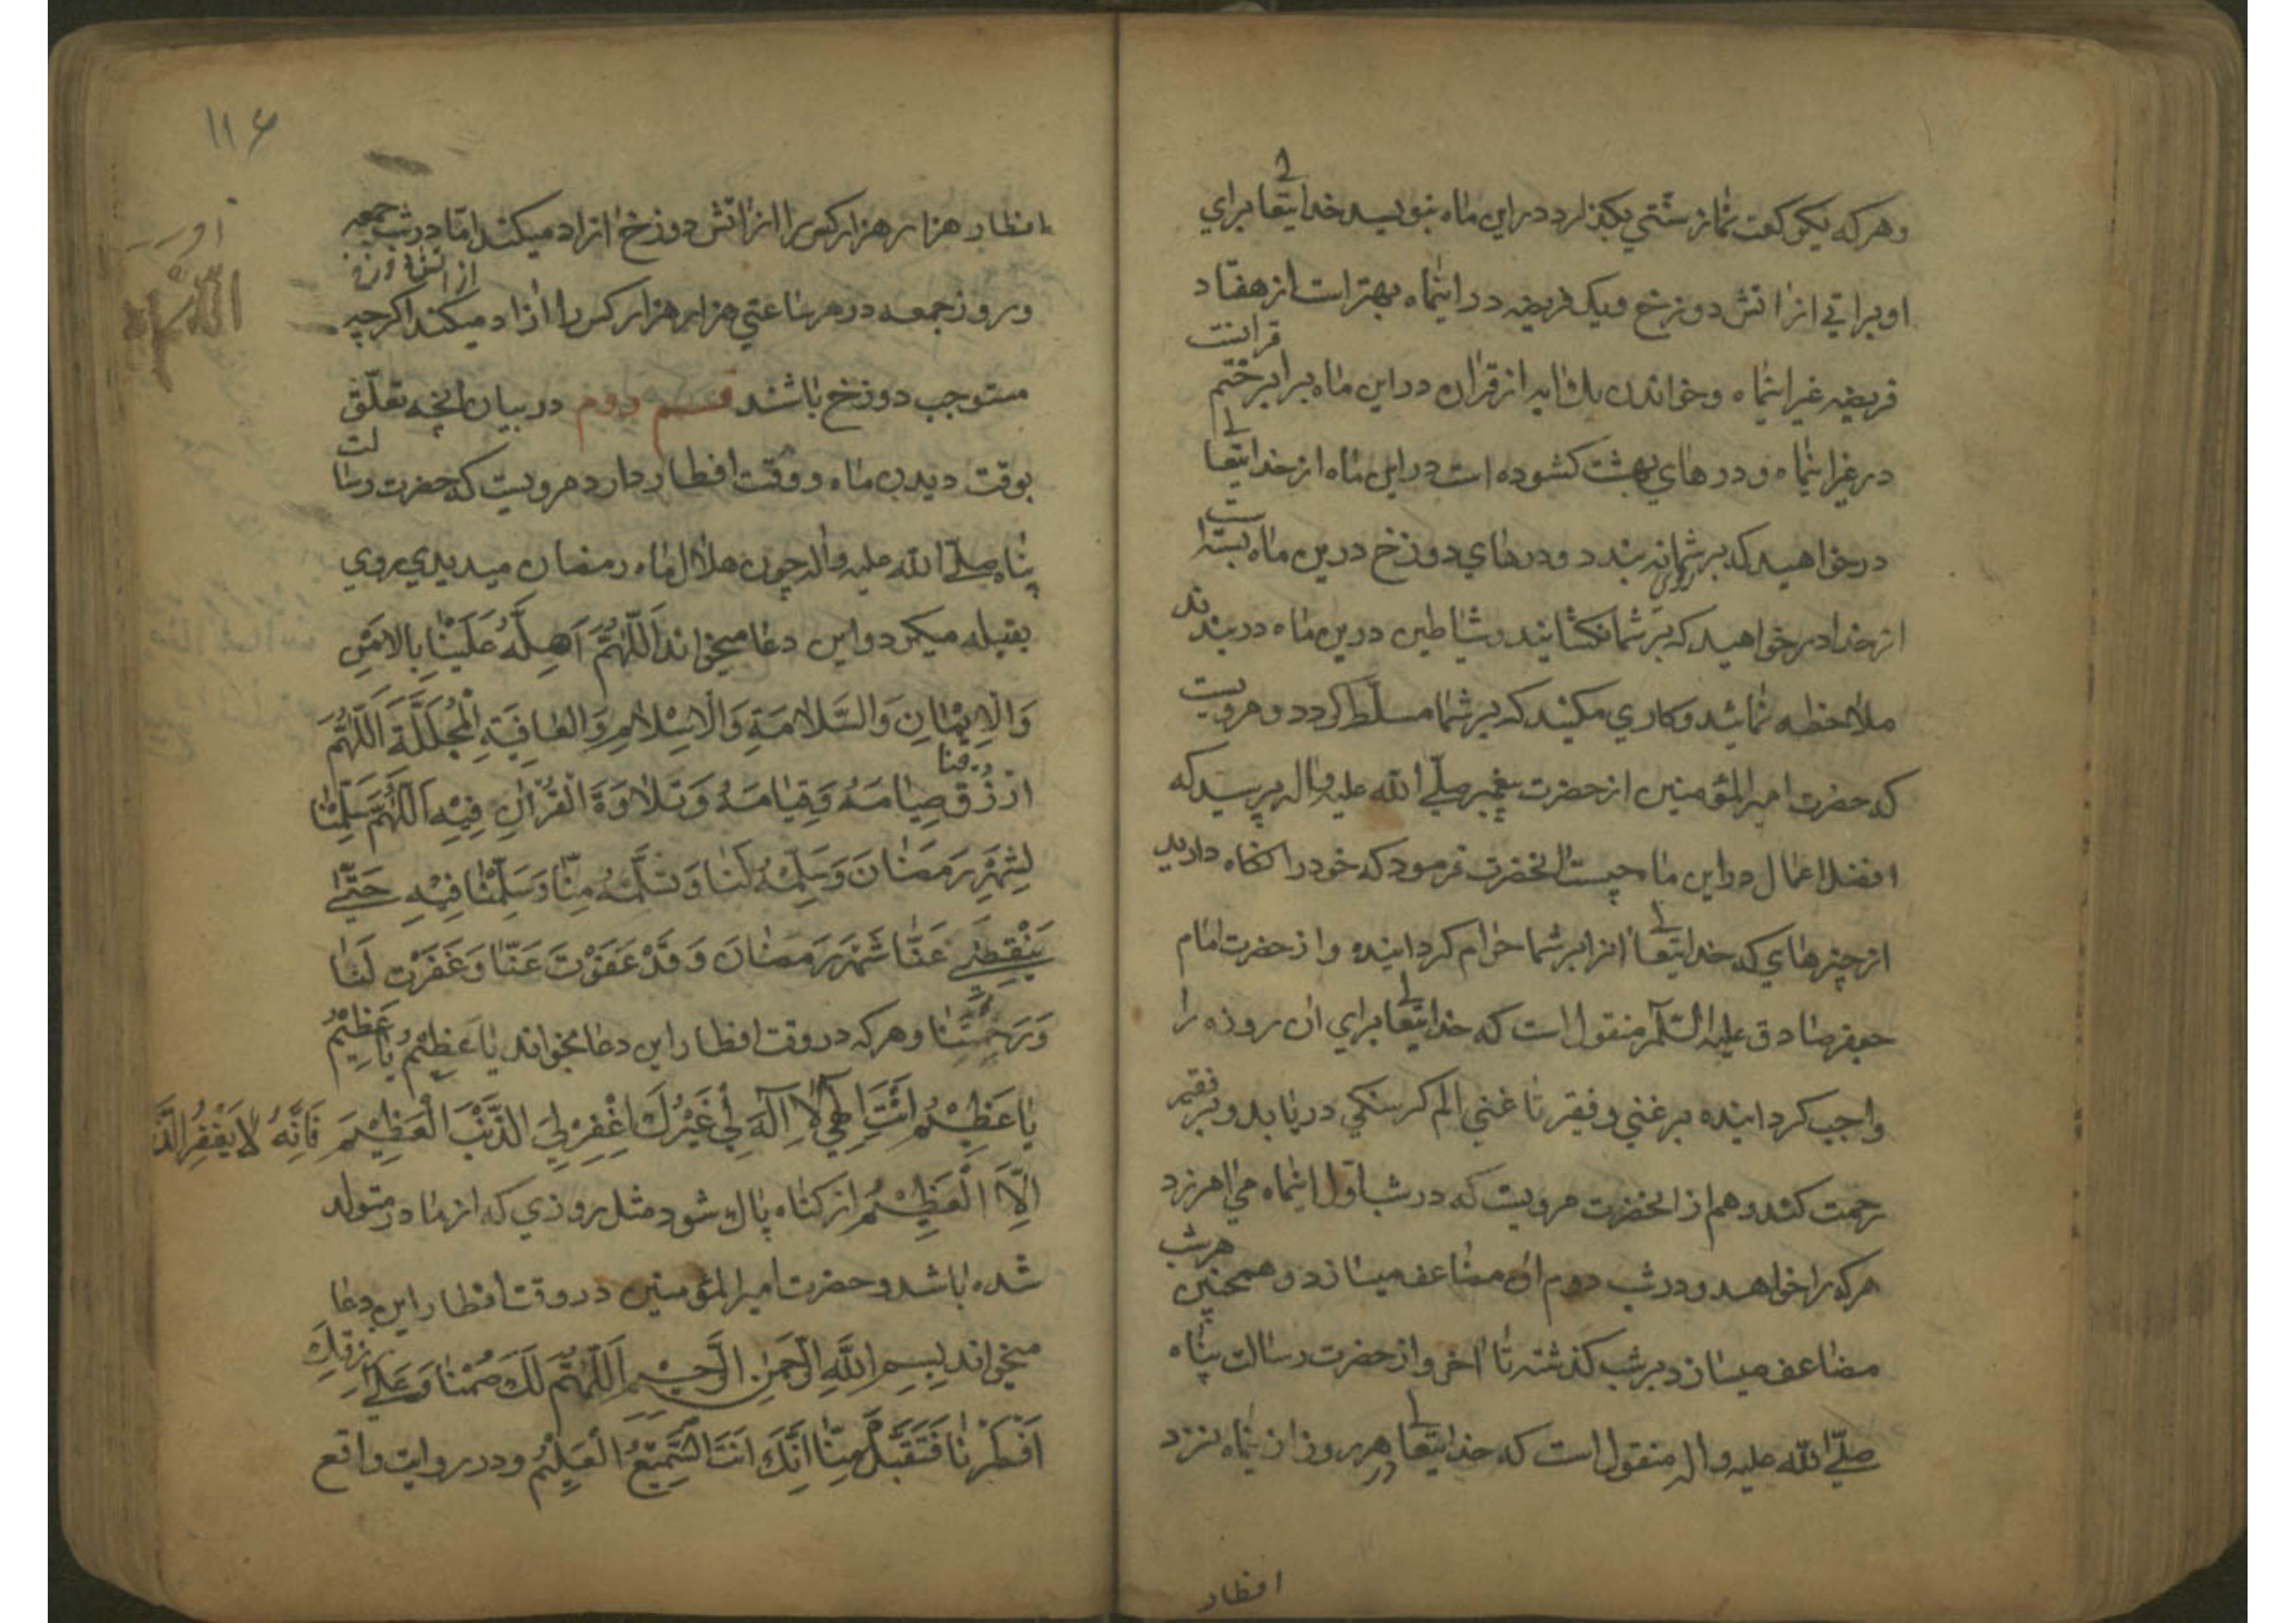 وهر که یکرکعت نماز سنتی بکذارد در این ماه بنویسد خدایتعالی برای
او براتی از اتش دوزخ ویک فریضه در اینماه بهتر است از هفتاد
فریضه غیر اینماه وخواندن یک ایه از قران در این ماه برابر ختم قرانیست
در غیر اینماه ودرهای بهشت کشوده است در این ماه از خدایتعالی
درخواهید که بر شما نه بندد ودرهای دوزخ درین ماه بسته است
از خدا درخواهید که بر روی شما نکشایند وشیاطین درین ماه دربندند
ملاحظه نمائید وکاری مکنید که بر شما مسلّط کردد ومرویست
که حضرت امیرالمؤمنین از حضرت پیغمبر صلّی الله علیه واله پرسید که
افضل اعمال در این ماه چیست انحضرت فرمود که خود را نکاه دارید
از چیزهای که خدایتعالی انرا بر شما حرام کردانیده واز حضرت امام
جعفر صادق علیه السّلام منقول است که خدایتعالی برای ان روزه را
واجب کردانیده بر غنی وفقیر تا غنی الم کرسنکی دریابد وبر فقیر
رحمت کند وهم از انحضرت مرویست که در شب اوّل اینماه می امرزد
هر که را خواهد ودر شب دوم ان مضاعف میسازد وهمچنین هر شب
مضاعف میسازد بر شب کذشته تا اخر واز حضرت رسالت پناه
صلّی الله علیه واله منقول است که خدایتعالی در هر روز از ینماه نزد
افطار
۱۱۶
افطار هزار هزار کس را از اتش دوزخ ازاد میکند امّا در شب جمعه
وروز جمعه در هر ساعتی هزار هزار کس را از اتش دوزخ ازاد میکند اکرچه
مستوجب دوزخ باشند قسم دوم در بیان انچه تعلّق
بوقت دیدن ماه ووقت افطار دارد مرویست که حضرت رسالت
پناه صلّی الله علیه واله چون هلال ماه رمضان میدیدی روی
بقبله میکرد واین دعا میخواند اَللّٰهُمَّ اَهِلَّهُ عَلَیْنَا بِالاَمْنِ
وَالْاِیْمَانِ وَالسَّلَامَةِ وَالْاِسْلَامِ وَالعَافِیَةِ الْمُجَلَّلَةِ اَللّٰهُمَّ
ارْزُقْنَا صِیَامَهُ وَقِیَامَهُ وَتَلَاوَةَ الْقُرْاٰنِ فِیْهِ اَللّٰهُمَّ سَلِّمْنَا
لِشَهْرِ رَمَضَانَ وَسَلِّمْهُ لَنَا وَتَسَلَّمْهُ مِنَّا وَسَلِّمْنَا فِیْهِ حَتّٰی
یَنْقَضِیَ عَنَّا شَهْرُ رَمَضَانَ وَقَدْ عَفَوْتَ عَنَّا وَغَفَرْتَ لَنَا
وَرَحِمْتَنَا وهر که در وقت افطار این دعا بخواند یَا عَظِیْمُ یَا عَظِیْمُ
یَا عَظِیْمُ اَنْتَ اِلٰهِی لَا اِلٰهَ لِی غَیْرُكَ اغْفِرْ لِیَ الذَّنْبَ الْعَظِیْمَ فَاِنَّهُ لَا یَغْفِرُ الذَّنْبَ
اِلَّا الْعَظِیْمُ از کناه پاك شود مثل روزی که از مادر متولد
شده باشد وحضرت امیرالمؤمنین در وقت افطار این دعا
میخواند بِسمِ اللّٰهِ الرَّحمٰنِ الرَّحیْمِ اَللّٰهُمَّ لَكَ صُمْنَا وَعَلٰی رِزْقِكَ
اَفْطَرْنَا فَتَقَبَّلْ مِنَّا اِنَّكَ اَنْتَ السَّمِیْعُ الْعَلِیْمُ ودر روایت واقع